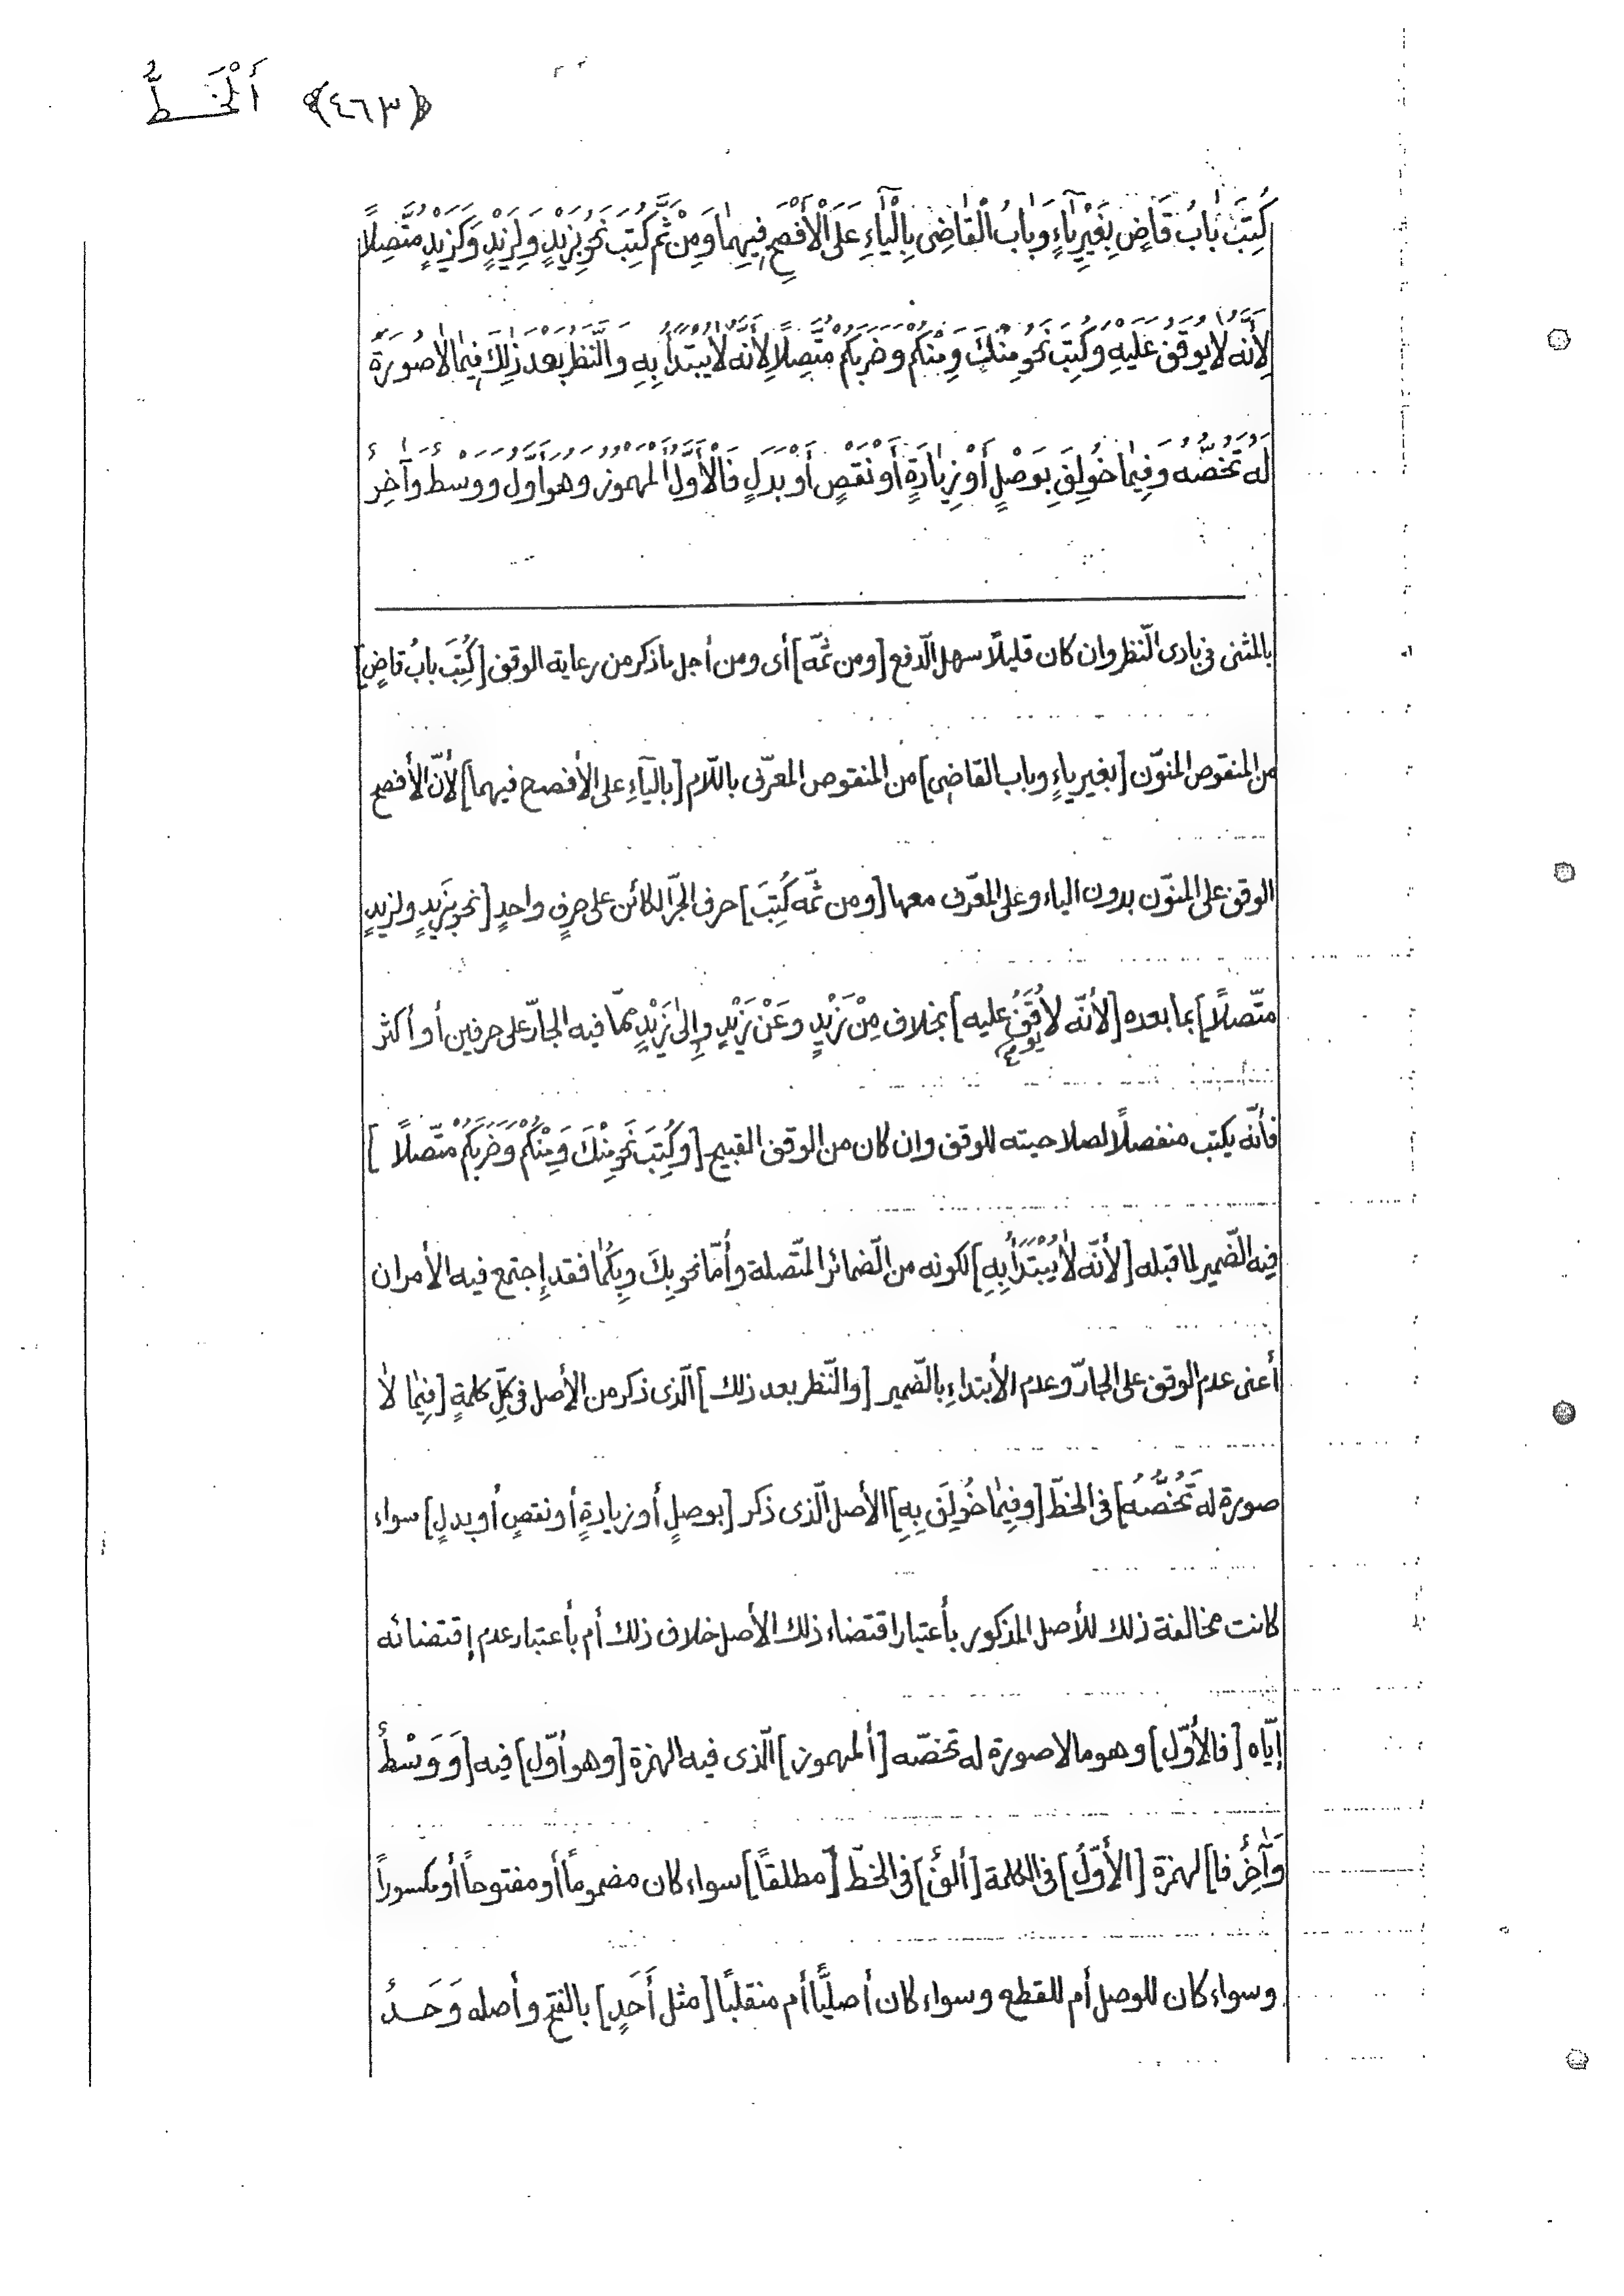 أَلْخَـــطُّ ﴿٤٦٣﴾
كُتِبَ بَابُ قَاضٍ بِغَيْرِ يَاءٍ وَبَابُ الْقَاضِى بِالْيَاءِ عَلَى الْأَفْصَحِ فِيهِمَا وَمِنْ ثَمَّ كُتِبَ نَحْوُ بِزَيْدٍ وَلِزَيْدٍ وَكَزَيْدٍ مُتَّصِلًا
لِأَنَّهُ لَا يُوقَفُ عَلَيْهِ وَكُتِبَ نَحْوُ مِنْكَ وَمِنْكُمْ وَضَرَبَكُمْ مُتَّصِلًا لِأَنَّهُ لَا يُبْتَدَأُ بِهِ وَالنَّظَرُ بَعْدَ ذَلِكَ فِيمَا لَا صُورَةَ
لَهُ تَخُصُّهُ وَفِيمَا خُولِفَ بِوَصْلٍ أَوْ زِيَادَةٍ أَوْ نَقْصٍ أَوْ بَدَلٍ فَالْأَوَّلُ الْمَهْمُوزُ وَهُوَ أَوَّلٌ وَوَسَطٌ وَآخِرٌ
بالمثنى فى بادى النّظر وان كان قليلًا سهل الدّفع [ومن ثمّه] أى ومن أجل ماذكر من رعاية الوقف [كُتِبَ بابُ قاضٍ]
من المنقوص المنوّن [بغير ياءٍ وباب القاضى] من المنقوص المعرّف باللّام [بالياءِ على الأفصح فيهما] لأنّ الأفصح
الوقف على المنوّن بدون الياء وعلى المعرّف معها [ومن ثمّه كُتِبَ] حرف الجرّ الكائن على حرفٍ واحدٍ [نحو بزَيدٍ ولزيدٍ
متّصلًا] بما بعده [لأنّه لا يوقَفُ عليه] بخلاف مِنْ زَيْدٍ وعَنْ زَيْدٍ وإلى زَيْدٍ ممّا فيه الجارّ على حرفين أو أكثر
فأنّه يكتب منفصلًا لصلاحيته للوقف وان كان من الوقف القبيح [وكُتِبَ نَحو مِنْكَ وَمِنْكُمْ وَضَرَبَكُمْ متّصلًا ]
فيه الضّمير لما قبله [لأنّه لَا يُبْتَدَأُ بِهِ] لكونه من الضّمائر المتّصلة وأمّا نحو بِكَ وبِكُمَا فقد إجتمع فيه الأمران
أعنى عدم الوقف على الجارّ وعدم الأبتداءِ بالضّمير [والنّظر بعد ذلك] الّذى ذكر من الأصل فى كلّ كلمةٍ [فِيمَا لَا
صورة له تَخُصُّهُ] فى الخطّ [وفِيمَا خُولِفَ بِهِ] الأصل الّذى ذكر [بوصلٍ أو زيادةٍ أو نقصٍ أو بدلٍ] سواء
كانت مخالفة ذلك للأصل المذكور بأعتبار اقتضاء ذلك الأصل خلاف ذلك أم بأعتبار عدم إقتضائه
إيّاه [فالأوّل] وهو مالا صورة له تخصّه [ألمهموز] الّذى فيه الهمزة [وهو أوّل] فيه [وَوَسْطٌ
وَآخِرٌ فا] لهمزة [الأوّلُ] فى الكلمة [ألفٌ] فى الخطّ [مطلقًا] سواء كان مضمومًا أو مفتوحاً أو مكسوراً
وسواء كان للوصل أم للقطع وسواء كان أصليًّا أم منقلبًا [مثل أَحَدٍ] بالفتح وأصله وَحَـــدٌ